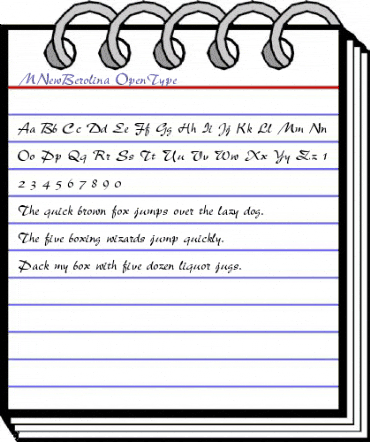 MNewBerolina OpenType
Aa Bb Cc Dd Ee Ff Gg Hh Ii Jj Kk Ll Mm Nn
Oo Pp Qq Rr Ss Tt Uu Vv Ww Xx Yy Zz 1
2 3 4 5 6 7 8 9 0
The quick brown fox jumps over the lazy dog.
The five boxing wizards jump quickly.
Pack my box with five dozen liquor jugs.